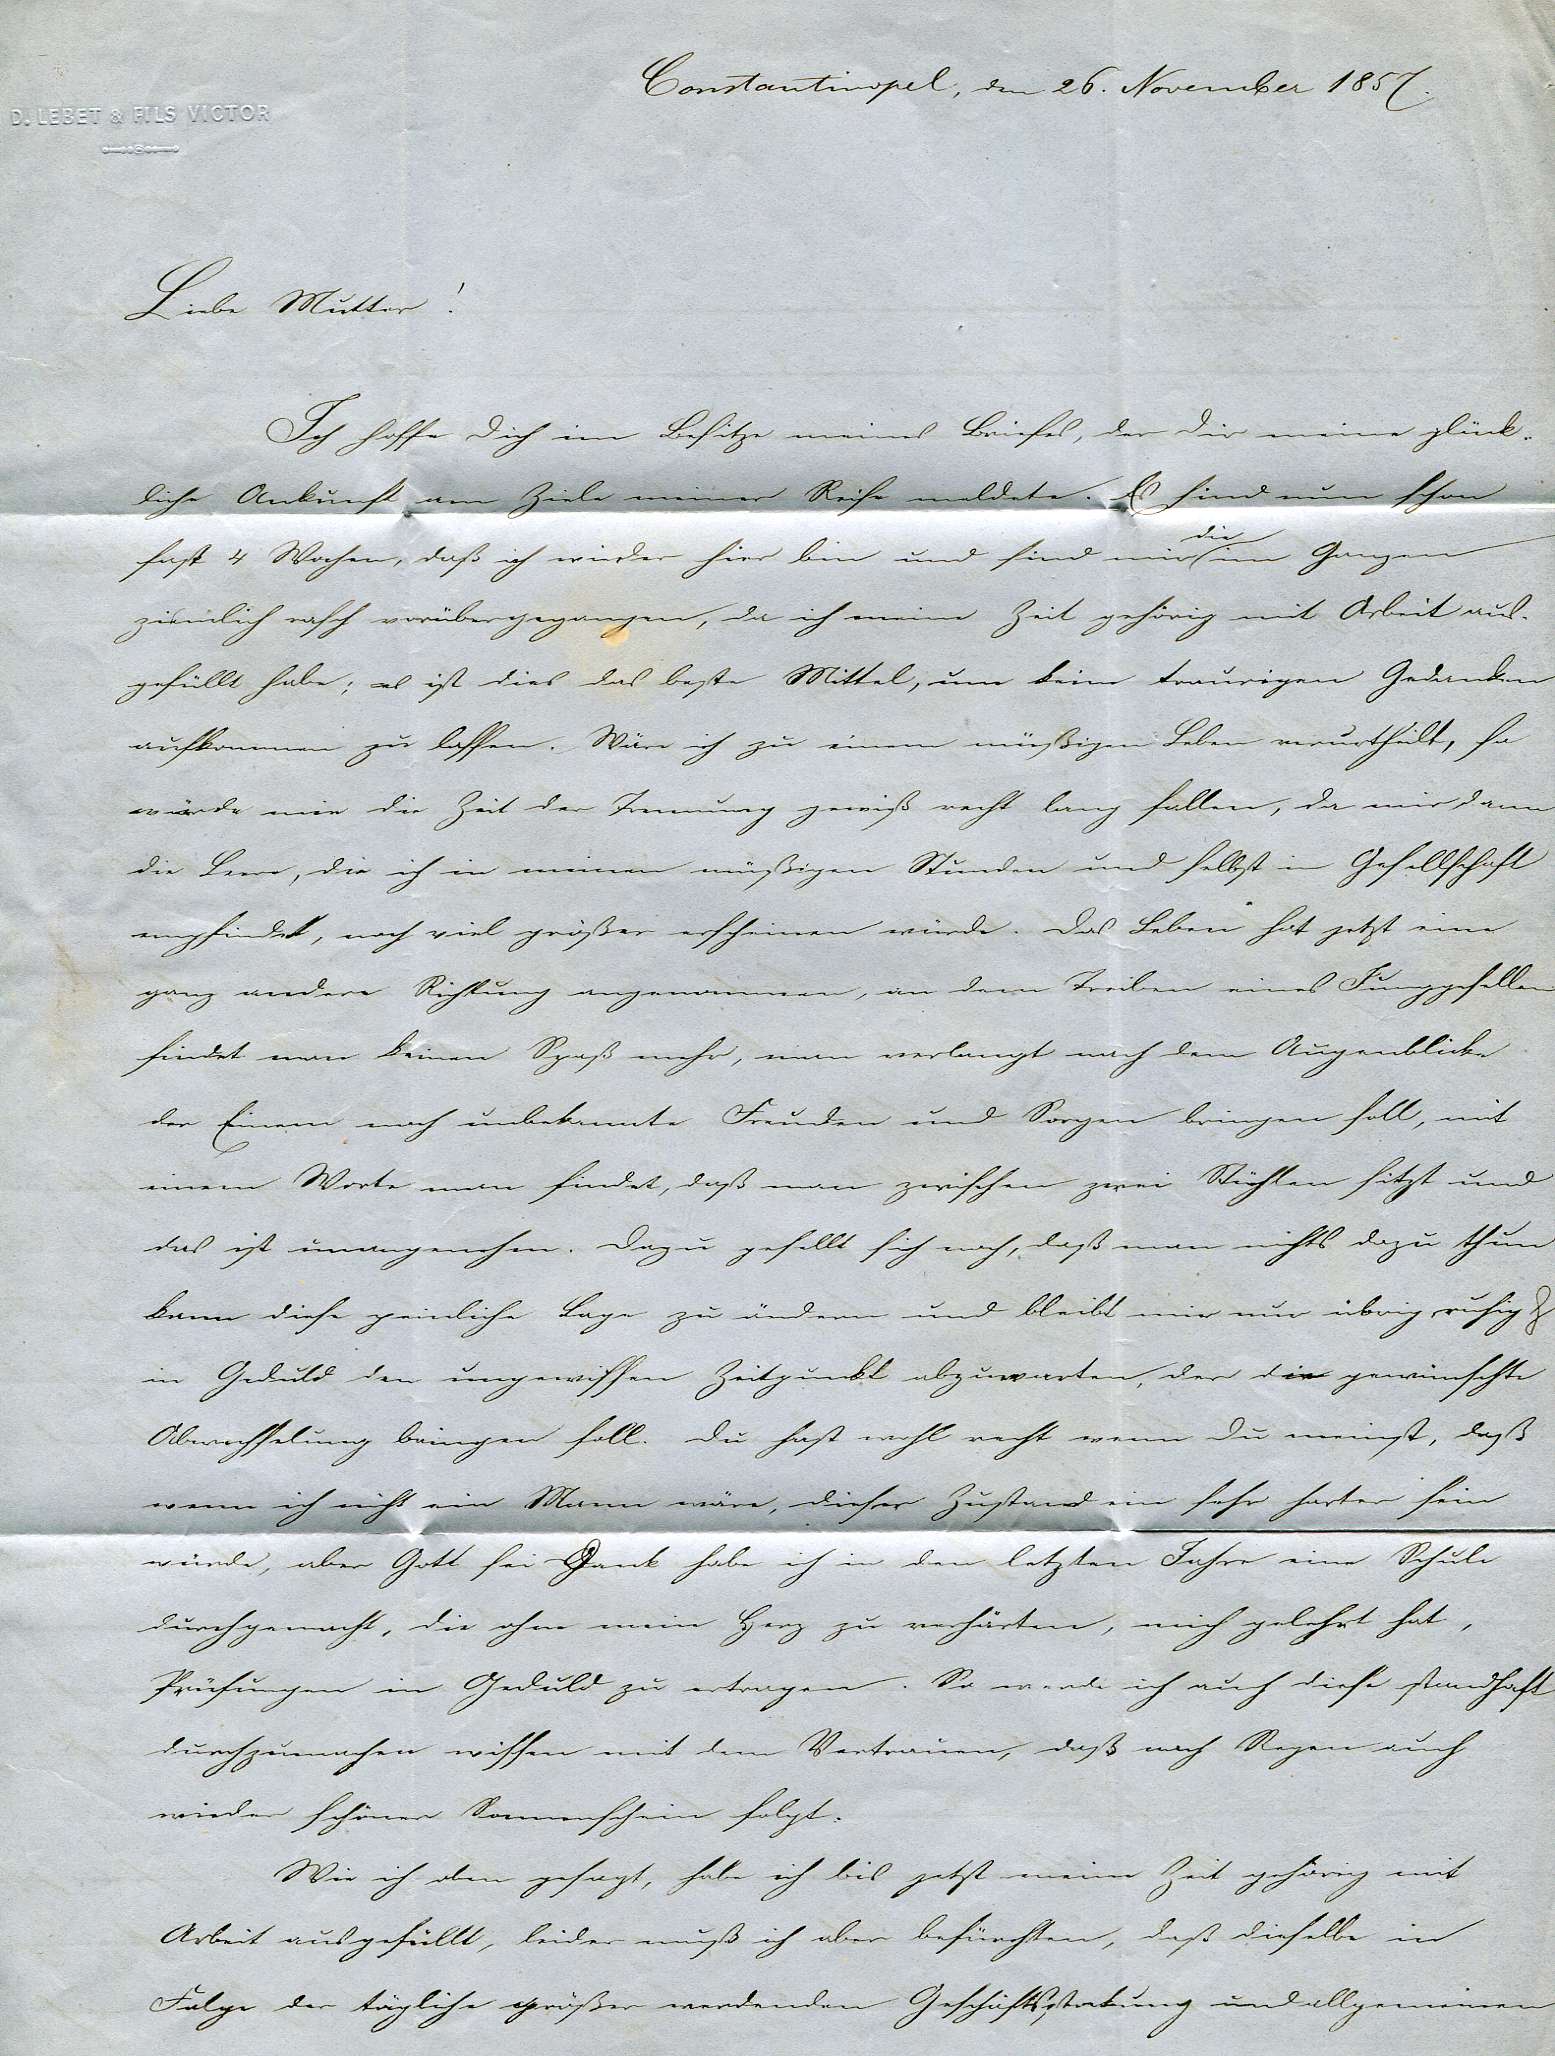 Constantinopel, den 26. November 1857.
D. LEBET & FILS VICTOR
Liebe Mutter!
Ich hoffe Dich im Besitze meines Briefes, der Dir meine glück-
liche Ankunft am Ziele meiner Reise meldete. Es sind nun schon
fast 4 Wochen, daß ich wieder hier bin und sind mir die im Ganzen
ziemlich rasch vorübergegangen, da ich meine Zeit gehörig mit Arbeit aus-
gefüllt habe; es ist dies das beste Mittel, um keine traurigen Gedanken
aufkommen zu lassen. Wäre ich zu einem müßigen Leben verurtheilt, so
würde mir die Zeit der Trennung gewiß recht lang fallen, da mir dann
die Leere, die ich in meinen müßigen Stunden und selbst in Gesellschaft
empfinde, noch viel größer erscheinen würde. Das Leben hat jetzt eine
ganz andere Richtung angenommen, an dem Treiben eines Junggesellen
findet man keinen Spaß mehr, man verlangt nach dem Augenblicke
der Einem noch unbekannte Freuden und Sorgen bringen soll, mit
einem Worte man findet, daß man zwischen zwei Stühlen sitzt und
das ist unangenehm. Dazu gesellt sich noch, daß man nichts dazu thun
kann diese peinliche Lage zu ändern und bleibt mir nur übrig ruhig &
in Geduld den ungewissen Zeitpunkt abzuwarten, der die gewünschte
Abwechselung bringen soll. Du hast wohl recht wenn Du meinst, daß
wenn ich nicht ein Mann wäre, dieser Zustand ein sehr harter sein
würde, aber Gott sei Dank habe ich in den letzten Jahre eine Schule
durchgemacht, die ohne mein Herz zu verhärten, mich gelehrt hat,
Prüfungen in Geduld zu ertragen. So werde ich auch diese standhaft
durchzumachen wissen mit dem Vertrauen, daß nach Regen auch
wieder schöner Sonnenschein folgt.
Wie ich oben gesagt, habe ich bis jetzt meine Zeit gehörig mit
Arbeit ausgefüllt, leider muß ich aber befürchten, daß dieselbe in
Folge der täglich größer werdenden Geschäftsstockung und allgemeinen